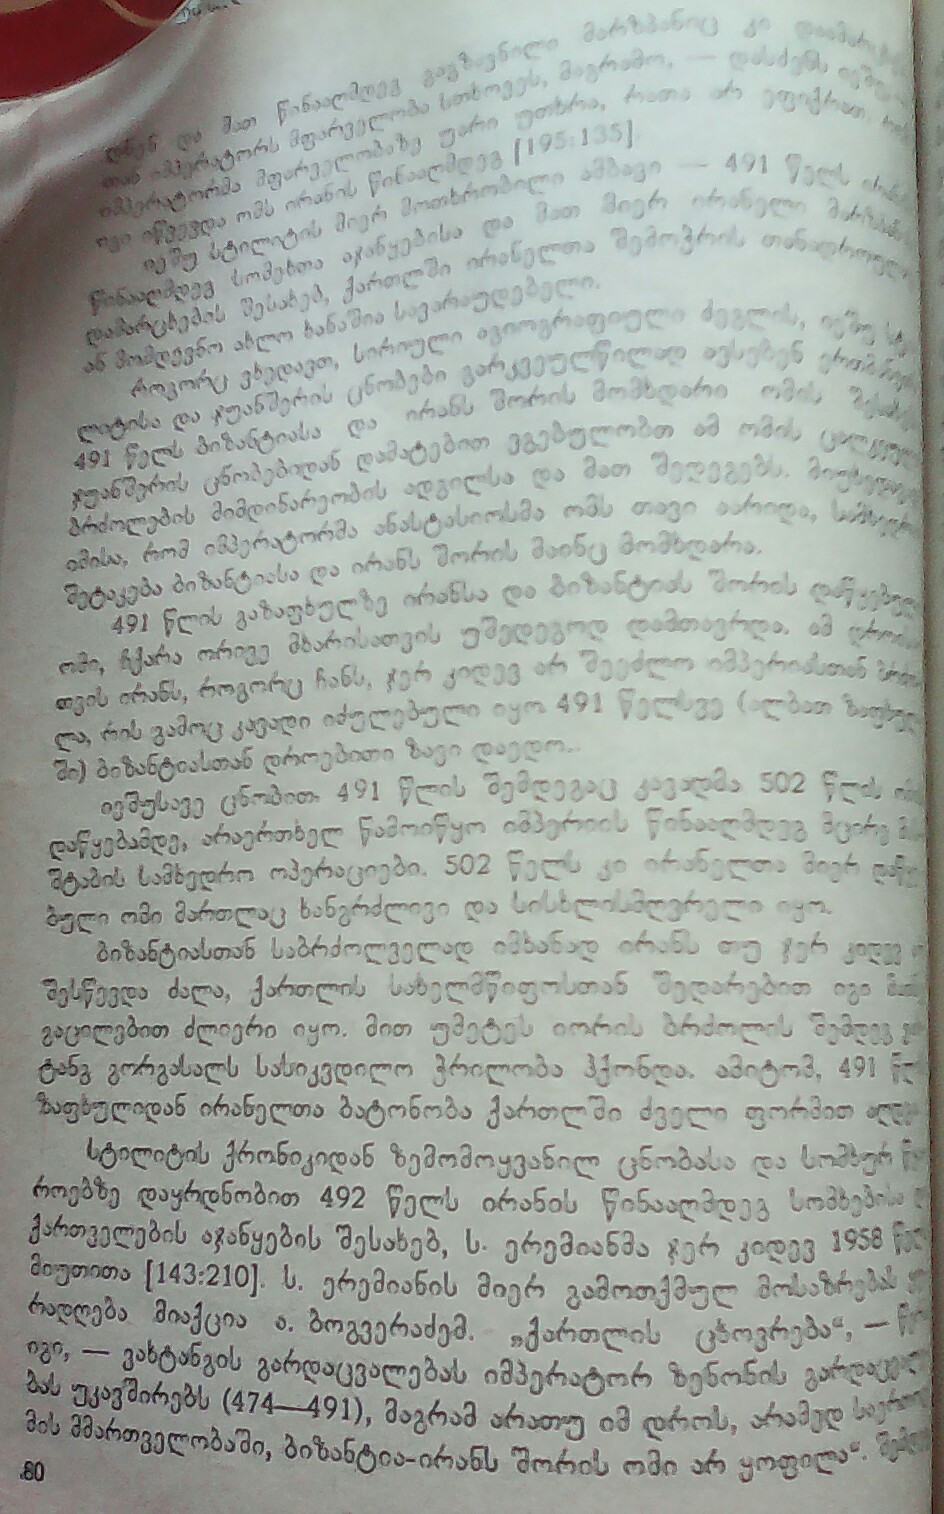 დნენ და მათ წინააღმდეგ გაგზავნილი მარზპანიც კი
თან იმპერატორს მფარველობა სთხოვეს, მაგრამო, — დასძენს იეშუ
იმპერატორმა მფარველობაზე უარი უთხრა, რათა არ ეფიქრათ,
იგი იწვევდა ომს ირანის წინააღმდეგ [195:135].
იეშუ სტილიტის მიერ მოთხრობილი ამბავი — 491 წელს
წინააღმდეგ სომეხთა აჯანყებისა და მათ მიერ ირანელი
დამარცხების შესახებ, ქართლში ირანელთა შემოჭრის თანადროული
ან მომდევნო ახლო ხანაშია სავარაუდებელი.
როგორც ვხედავთ, სირიული აგიოგრაფიული ძეგლის, იეშუ
ლიტისა და ჯუანშერის ცნობები გარკვეულწილად ავსებენ
491 წელს ბიზანტიასა და ირანს შორის მომხდარი ომის
ჯუანშერის ცნობებიდან დამატებით ვგებულობთ ამ ომის
ბრძოლების მიმდინარეობის ადგილსა და მათ შედეგებს.
იმისა, რომ იმპერატორმა ანასტასიოსმა ომს თავი აარიდა,
შეტაკება ბიზანტიასა და ირანს შორის მაინც მომხდარა.
491 წლის გაზაფხულზე ირანსა და ბიზანტიას შორის
ომი, ჩქარა ორივე მხარისათვის უშედეგოდ დამთავრდა. ამ
თვის ირანს, როგორც ჩანს, ჯერ კიდევ არ შეეძლო იმპერიასთან
ლა, რის გამოც კავადი იძულებული იყო 491 წელსვე (ალბათ
ში) ბიზანტიასთან დროებითი ზავი დაედო.
იეშუსავე ცნობით 491 წლის შემდეგაც კავადმა 502 წლის
დაწყებამდე, არაერთხელ წამოიწყო იმპერიის წინააღმდეგ მცირე
შტაბის სამხედრო ოპერაციები. 502 წელს კი ირანელთა მიერ
ბული ომი მართლაც ხანგრძლივი და სისხლისმღვრელი იყო.
ბიზანტიასთან საბრძოლველად იმხანად ირანს თუ ჯერ კიდევ
შესწევდა ძალა, ქართლის სახელმწიფოსთან შედარებით იგი
გაცილებით ძლიერი იყო. მით უმეტეს იორის ბრძოლის შემდეგ
ტანგ გორგასალს სასიკვდილო ჭრილობა ჰქონდა. ამიტომ, 491
ზაფხულიდან ირანელთა ბატონობა ქართლში ძველი ფორმით
სტილიტის ქრონიკიდან ზემომოყვანილ ცნობასა და სომხურ
როებზე დაყრდნობით 492 წელს ირანის წინააღმდეგ სომხებისა
ქართველების აჯანყების შესახებ, ს. ერემიანმა ჯერ კიდევ 1958
მიუთითა [143:210]. ს. ერემიანის მიერ გამოთქმულ მოსაზრებას
რადღება მიაქცია ა. ბოგვერაძემ. „ქართლის ცხოვრება“, —
იგი, — ვახტანგის გარდაცვალებას იმპერატორ ზენონის
ბას უკავშირებს (474—491), მაგრამ არათუ იმ დროს, არამედ
მის მმართველობაში, ბიზანტია-ირანს შორის ომი არ ყოფილა“.
80